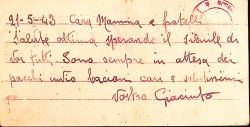 21-5-43 Cara Mamma e fratelli
Salute ottima sperando il simile di
voi tutti. Sono sempre in attesa dei
pacchi invio bacioni cari e saludissimi
Vostro Giacinto